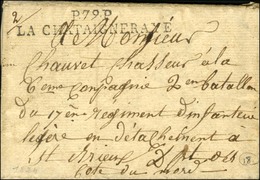 P79P
LA CHATAIGNERAYE
2/
A Monsieur
Chauvet chasseur à la
6eme Compagnie 2 en bataillon
du 17ème Regiment d'infanterie
legere en détachement à
St Brieux Dpt des
Cote du nord